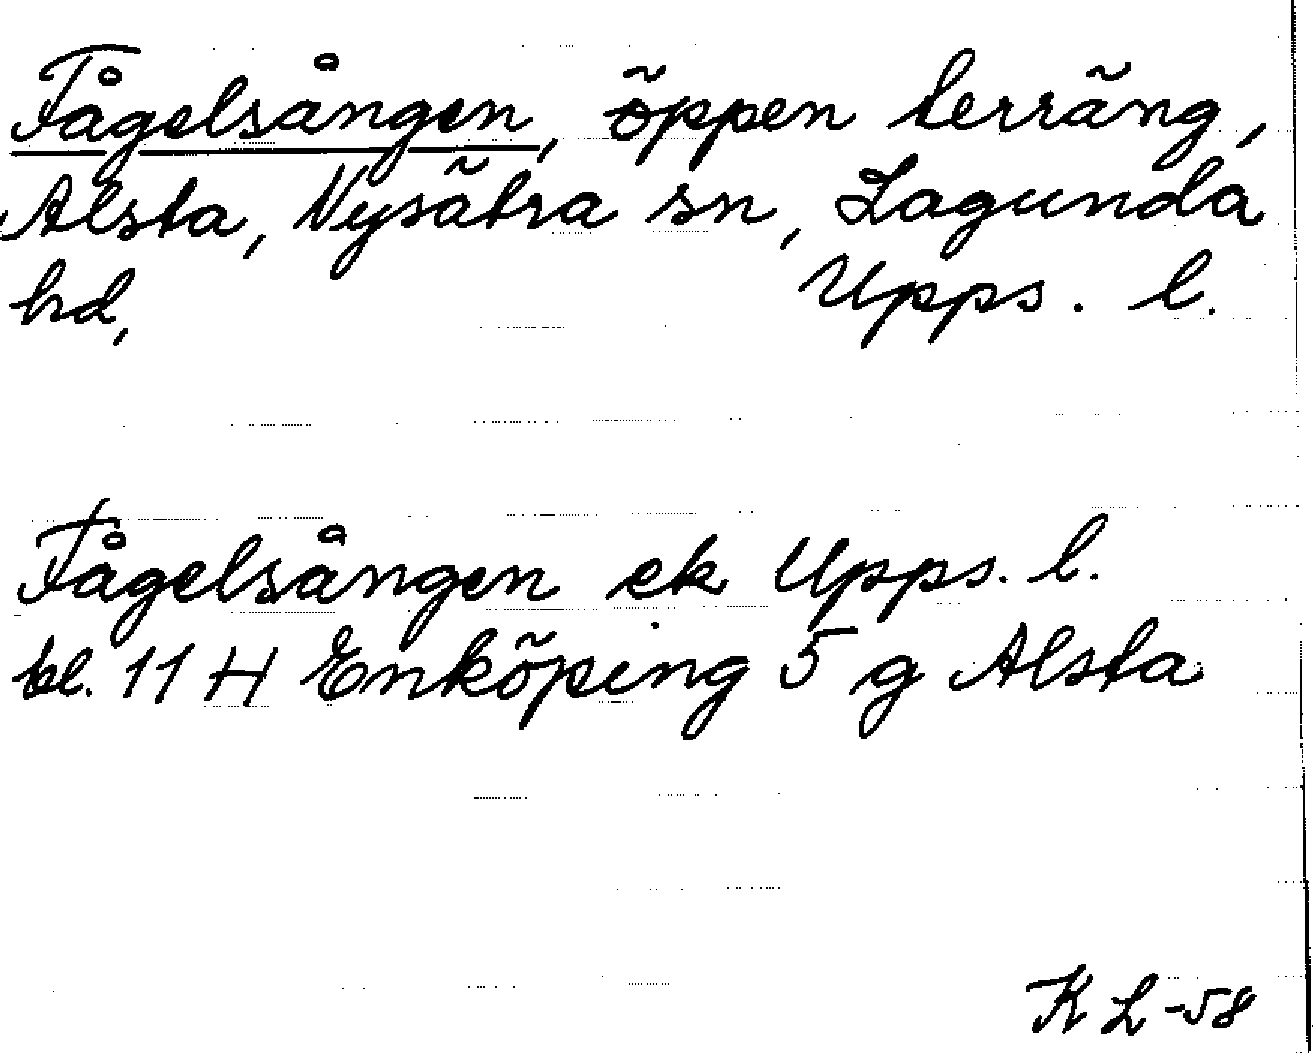 Fågelsången, öppen terräng,
Alsta, Nysätra sn, Lagunda
hd, Upps. l.
Fågelsången ek Upps. l.
bl. 11 H Enköping 5 g Alsta
K L -58